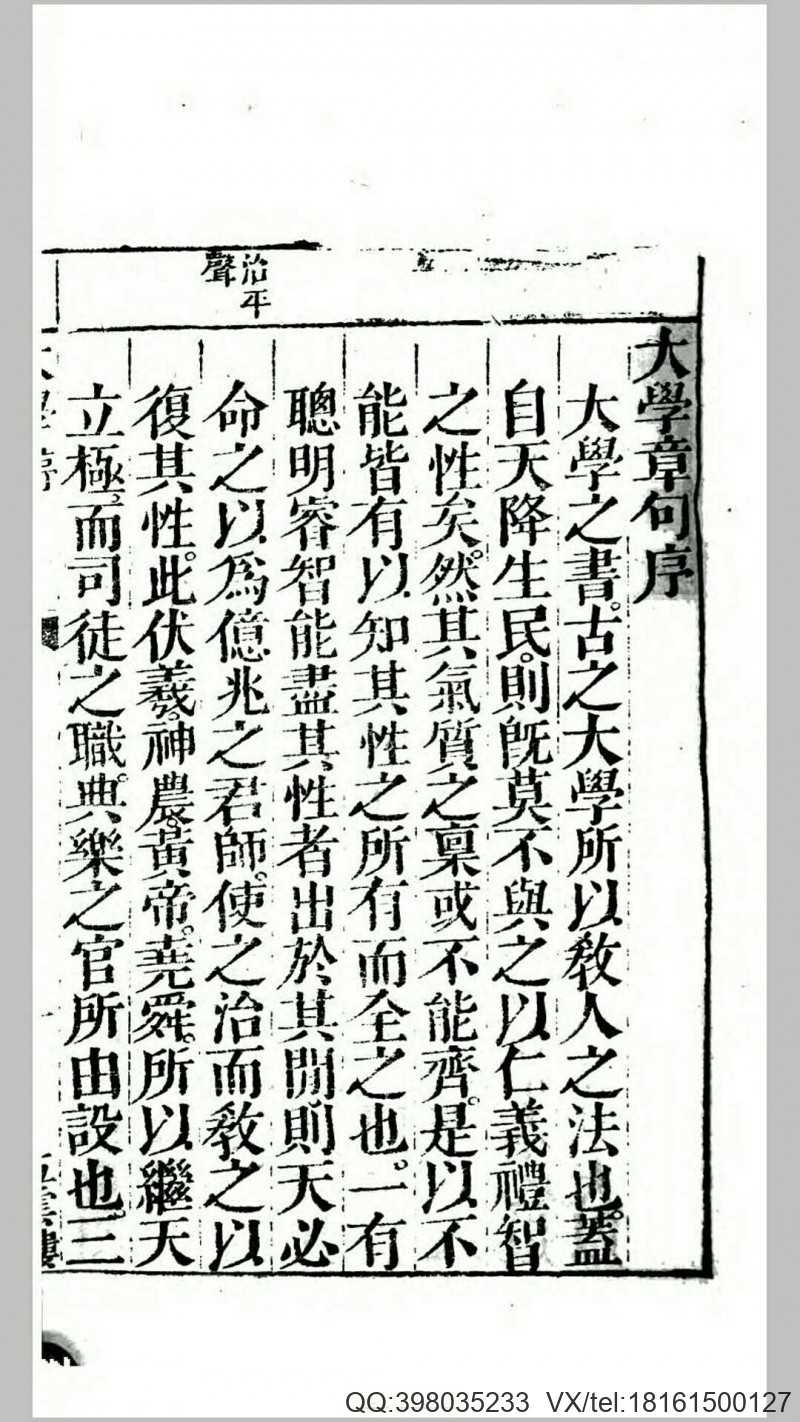 治平
聲
大學章句序
大學之書。古之大學所以敎人之法也。蓋
自天降生民。則旣莫不與之以仁義禮智
之性矣。然其氣質之稟或不能齊。是以不
能皆有以知其性之所有而全之也。一有
聰明睿智能盡其性者出於其閒。則天必
命之以爲億兆之君師。使之治而敎之以
復其性。此伏羲。神農。黃帝。堯舜。所以繼天
立極。而司徒之職。典樂之官所由設也。三
大學序
QQ:398035233 VX/tel:18161500127